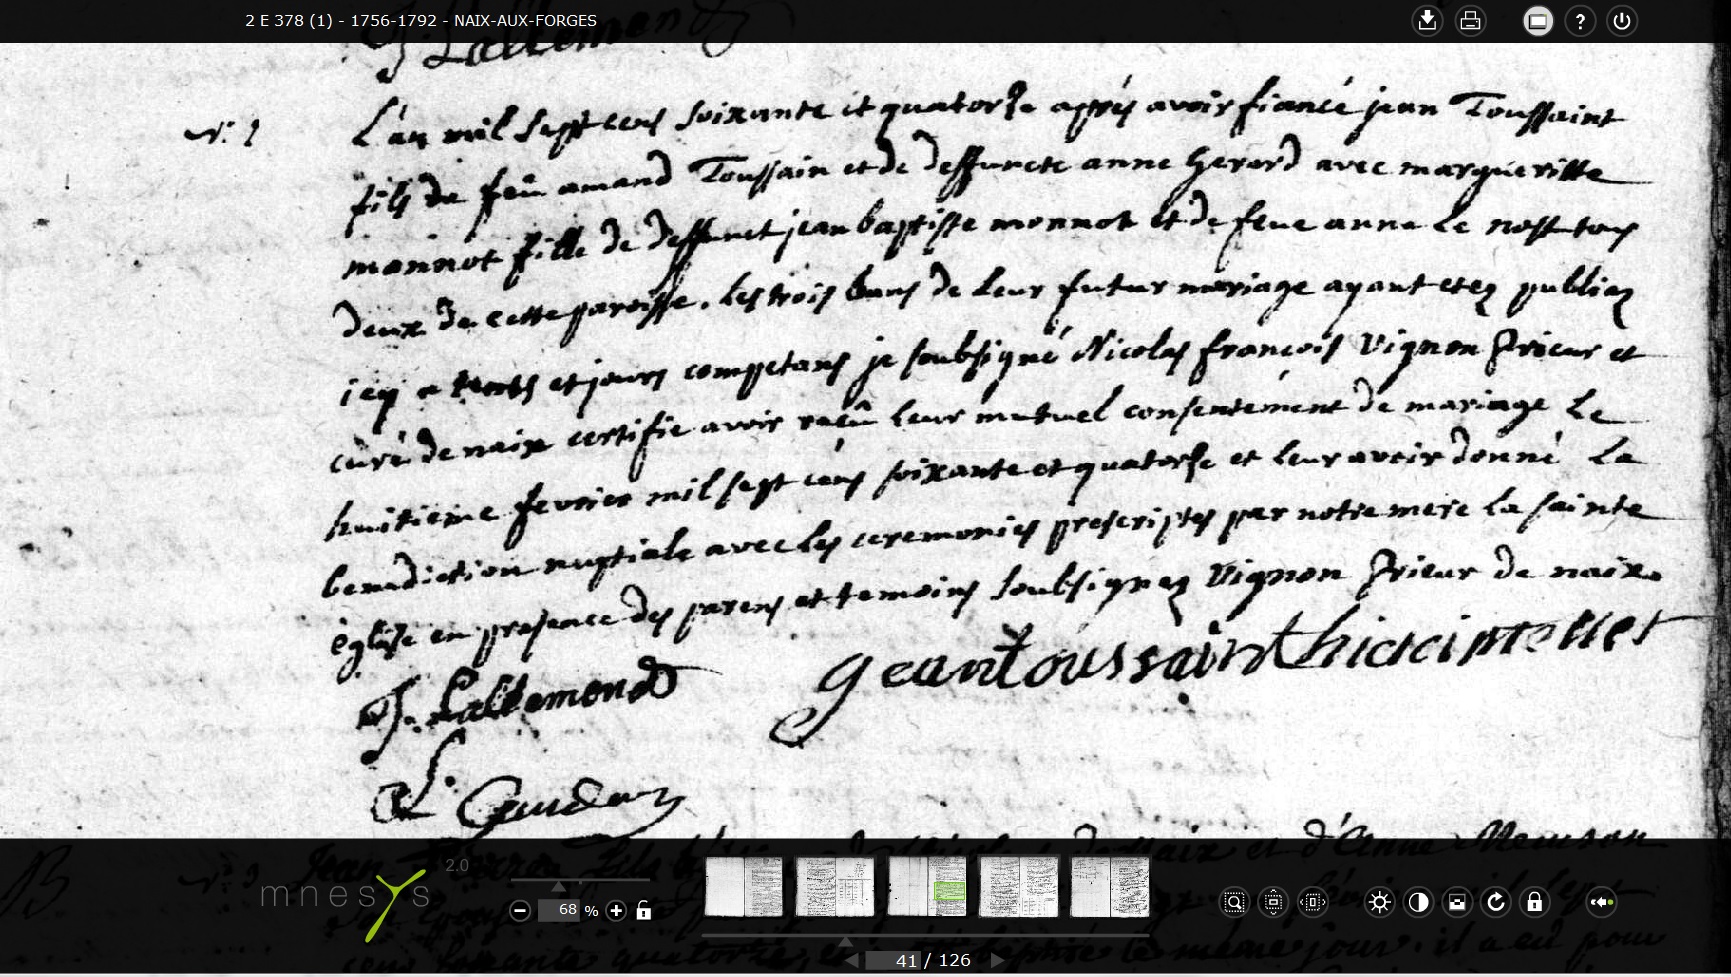 2 E 378 (1) - 1756-1792 - NAIX-AUX-FORGES
J. Lallemend
L'an mil sept cens soixante et quatorse apprés avoir fiancé jean Toussaint
fils de feû amand Toussain et de deffuncte anne Gerard avec margueritte
monnot fille de deffunct jean baptiste monnot et de feue anne Le nost tous
deux de cette paroisse. les trois bans de leur futur mariage ayant etez publiez
icy a temps et jours competans je soubsigné Nicolas françois Vignon Prieur et
curé de naix certifie avoir reçû leur mutuel consentement de mariage Le
huitieme fevrier mil sept cens soixante et quatorse et leur avoir donné La
benediction nuptiale avec les ceremonies prescriptes par notre mere La sainte
église en presence des parens et temoins soubsignez Vignon Prieur de naix.
gean toussaint
J. Lallemend
2.0
mnesys
68 %
41 / 126